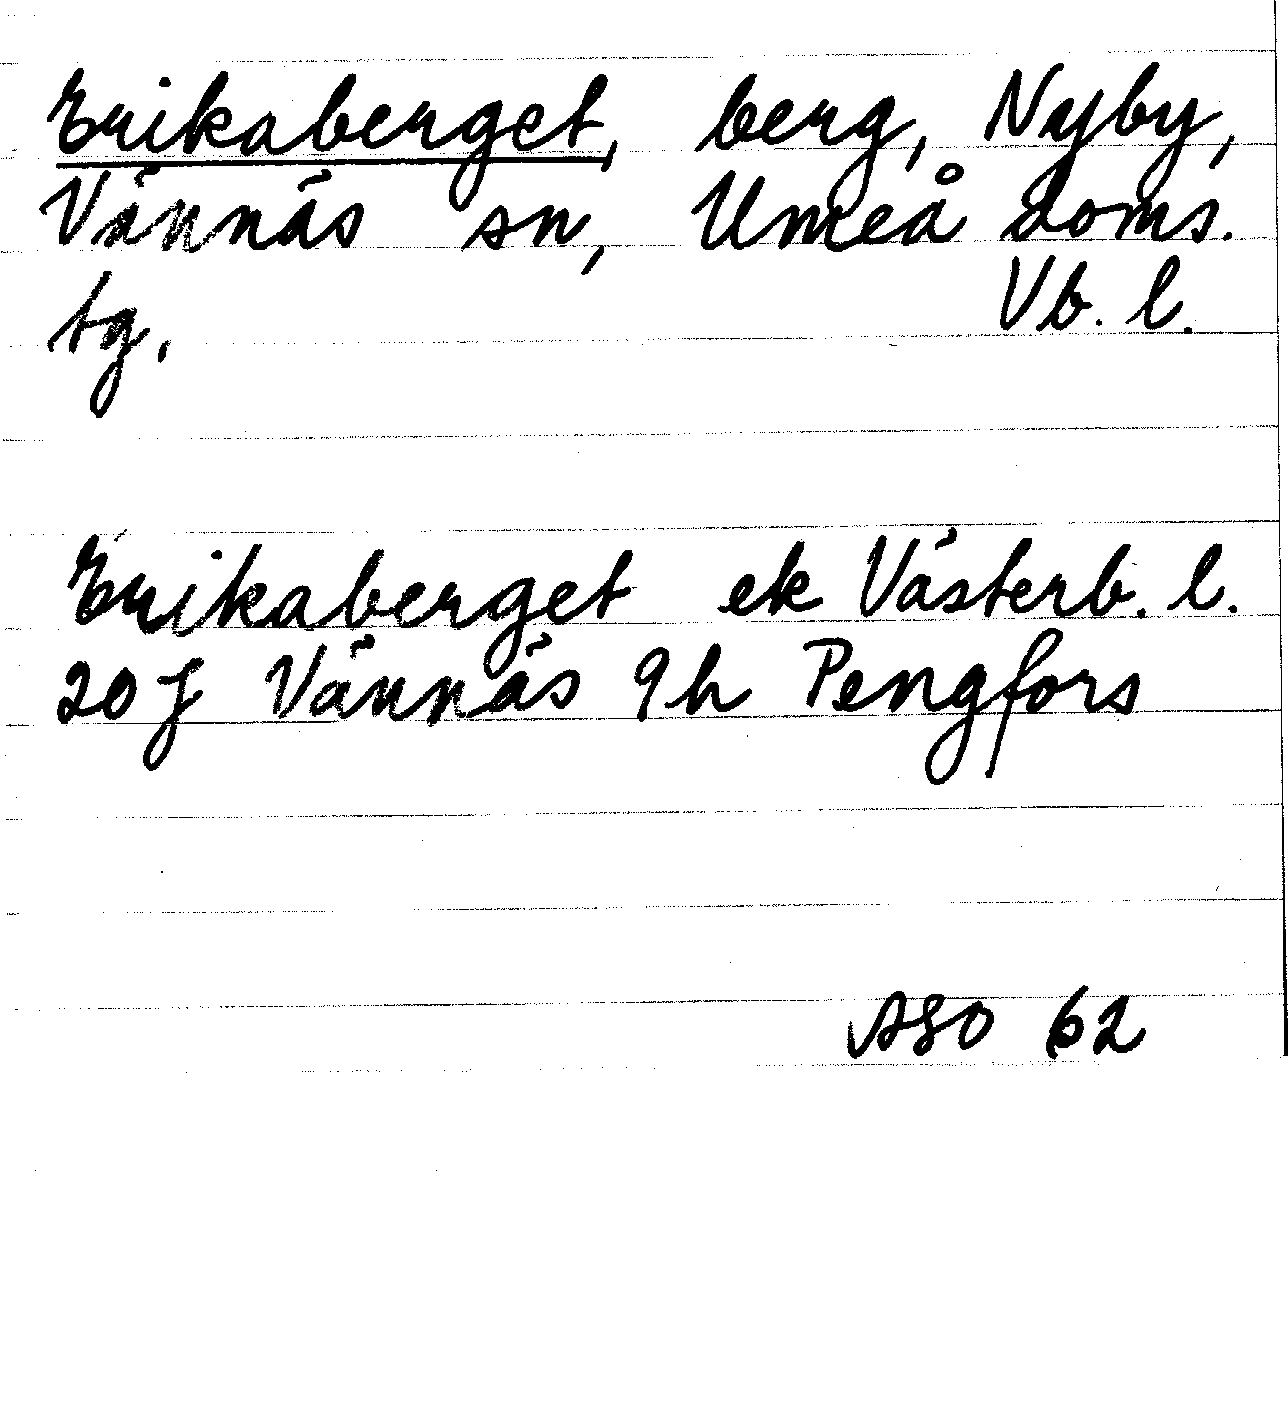 Erikaberget, berg, Nyby,
Vännäs sn, Umeå doms.
tg. Vb. l.
Erikaberget ek Västerb. l.
20J Vännäs 9h Pengfors
ASO 62